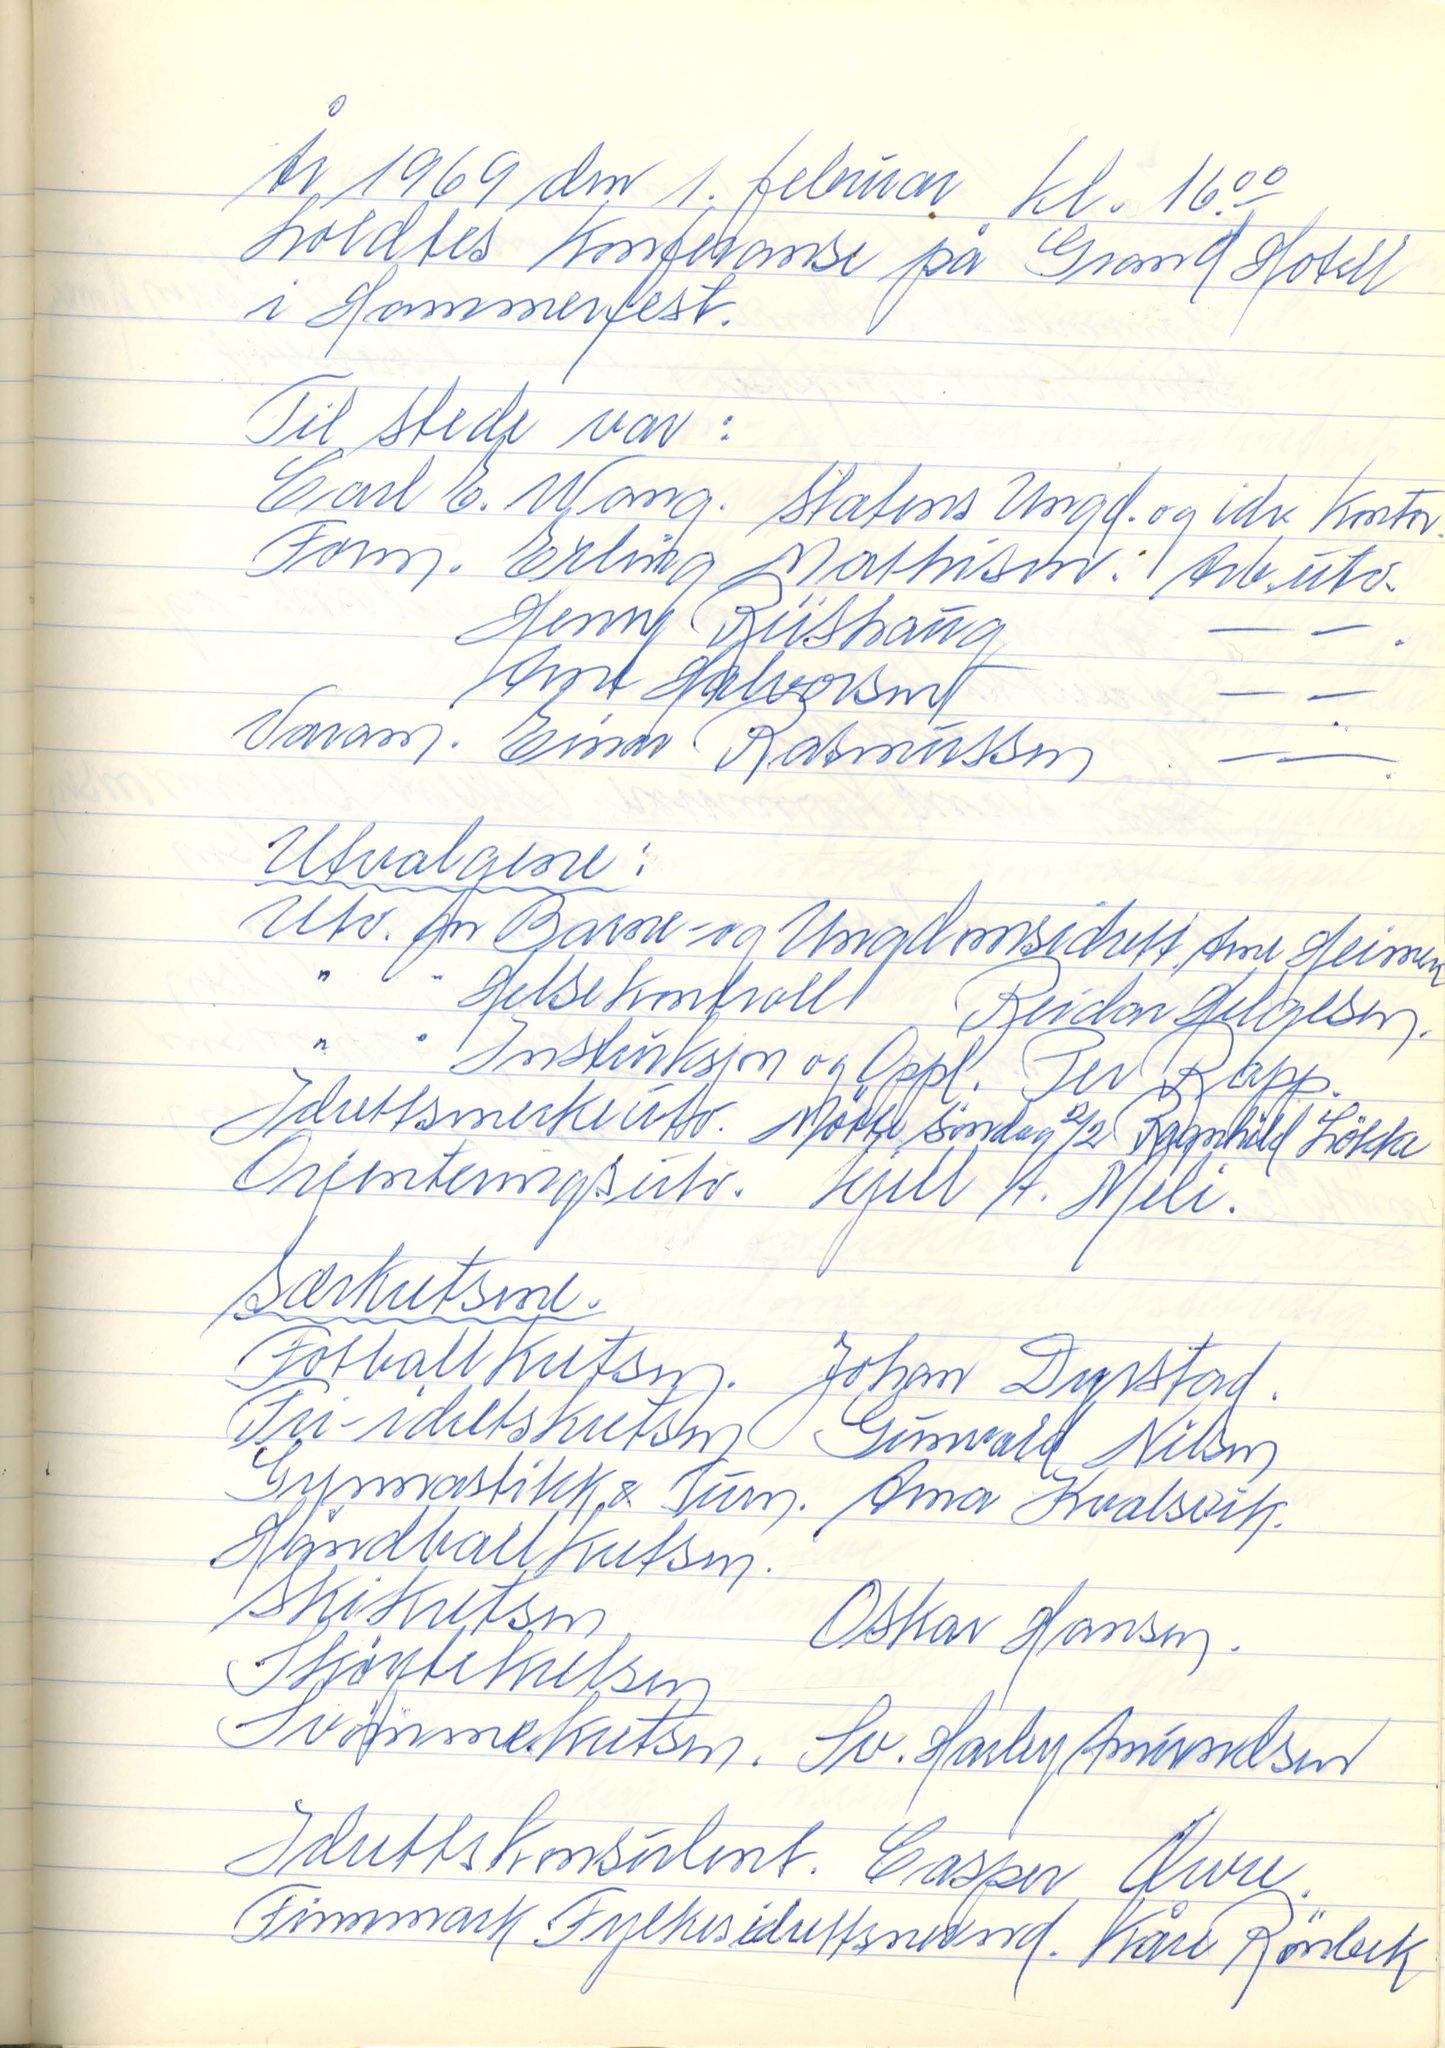 År 1969 den 1. februar kl. 16.00
holdtes konferanse på Grand Hotell
i Hammerfest.
Til stede var:
Carl E. Wang. Statens Ungd. og idr. kontor.
Form. Erling Mathisen. Arb.utv.
Henry Riishaug — — .
Arnt Halvorsen — —
Varam. Einar Rasmussen — — .
Utvalgene:
Utv. for Barne- og Ungdomsidrett, Arne Heimen
" " Helsekontroll Reidar Helgesen.
" " Instruksjon og Oppl. Per Rapp.
Idrettsmerkeutv. Møtte søndag 2/2 Ragnhild Løkke
Orienteringsutv. Kjell A. Meli.
Særkretsene.
Fotballkretsen. Johan Dyrstad.
Fri-idrettskretsen Gunvald Nilsen
Gymnastikk & Turn. Anna Kvalsvik.
Håndballkretsen.
Skikretsen Oskar Hansen.
Skøytekretsen
Svømmekretsen. Sv. Harley Amundsen
Idrettskonsulent. Casper
Finnmark Fylkesidrettsnevnd. Kåre Rönbeck